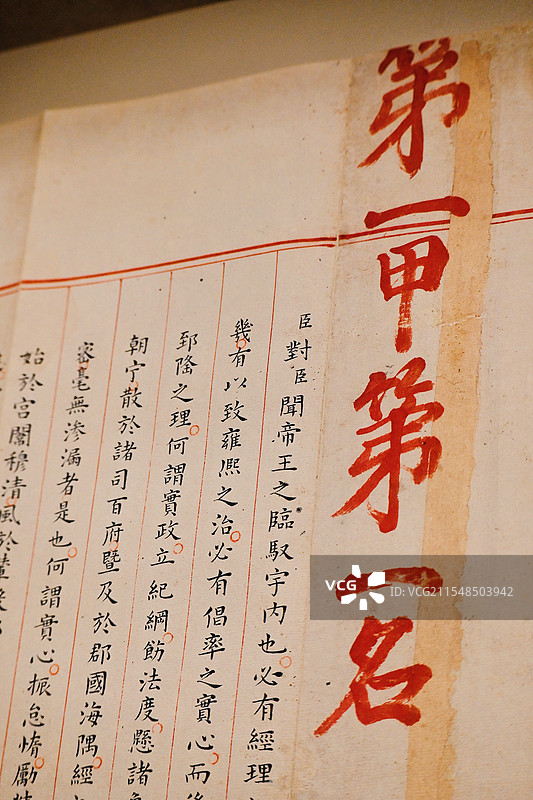 第一甲第一名
臣對臣聞帝王之臨馭宇内也必有經理
幾有以致雍熙之治必有倡率之實心而後
郅隆之理何謂實政立紀綱飭法度懸諸
朝宁散於諸司百府暨及於郡國海隅經
密毫無滲漏者是也何謂實心振怠惰勵
始於宮闈穆清風於
視覺中國
VCG
ID: VCG211548503942